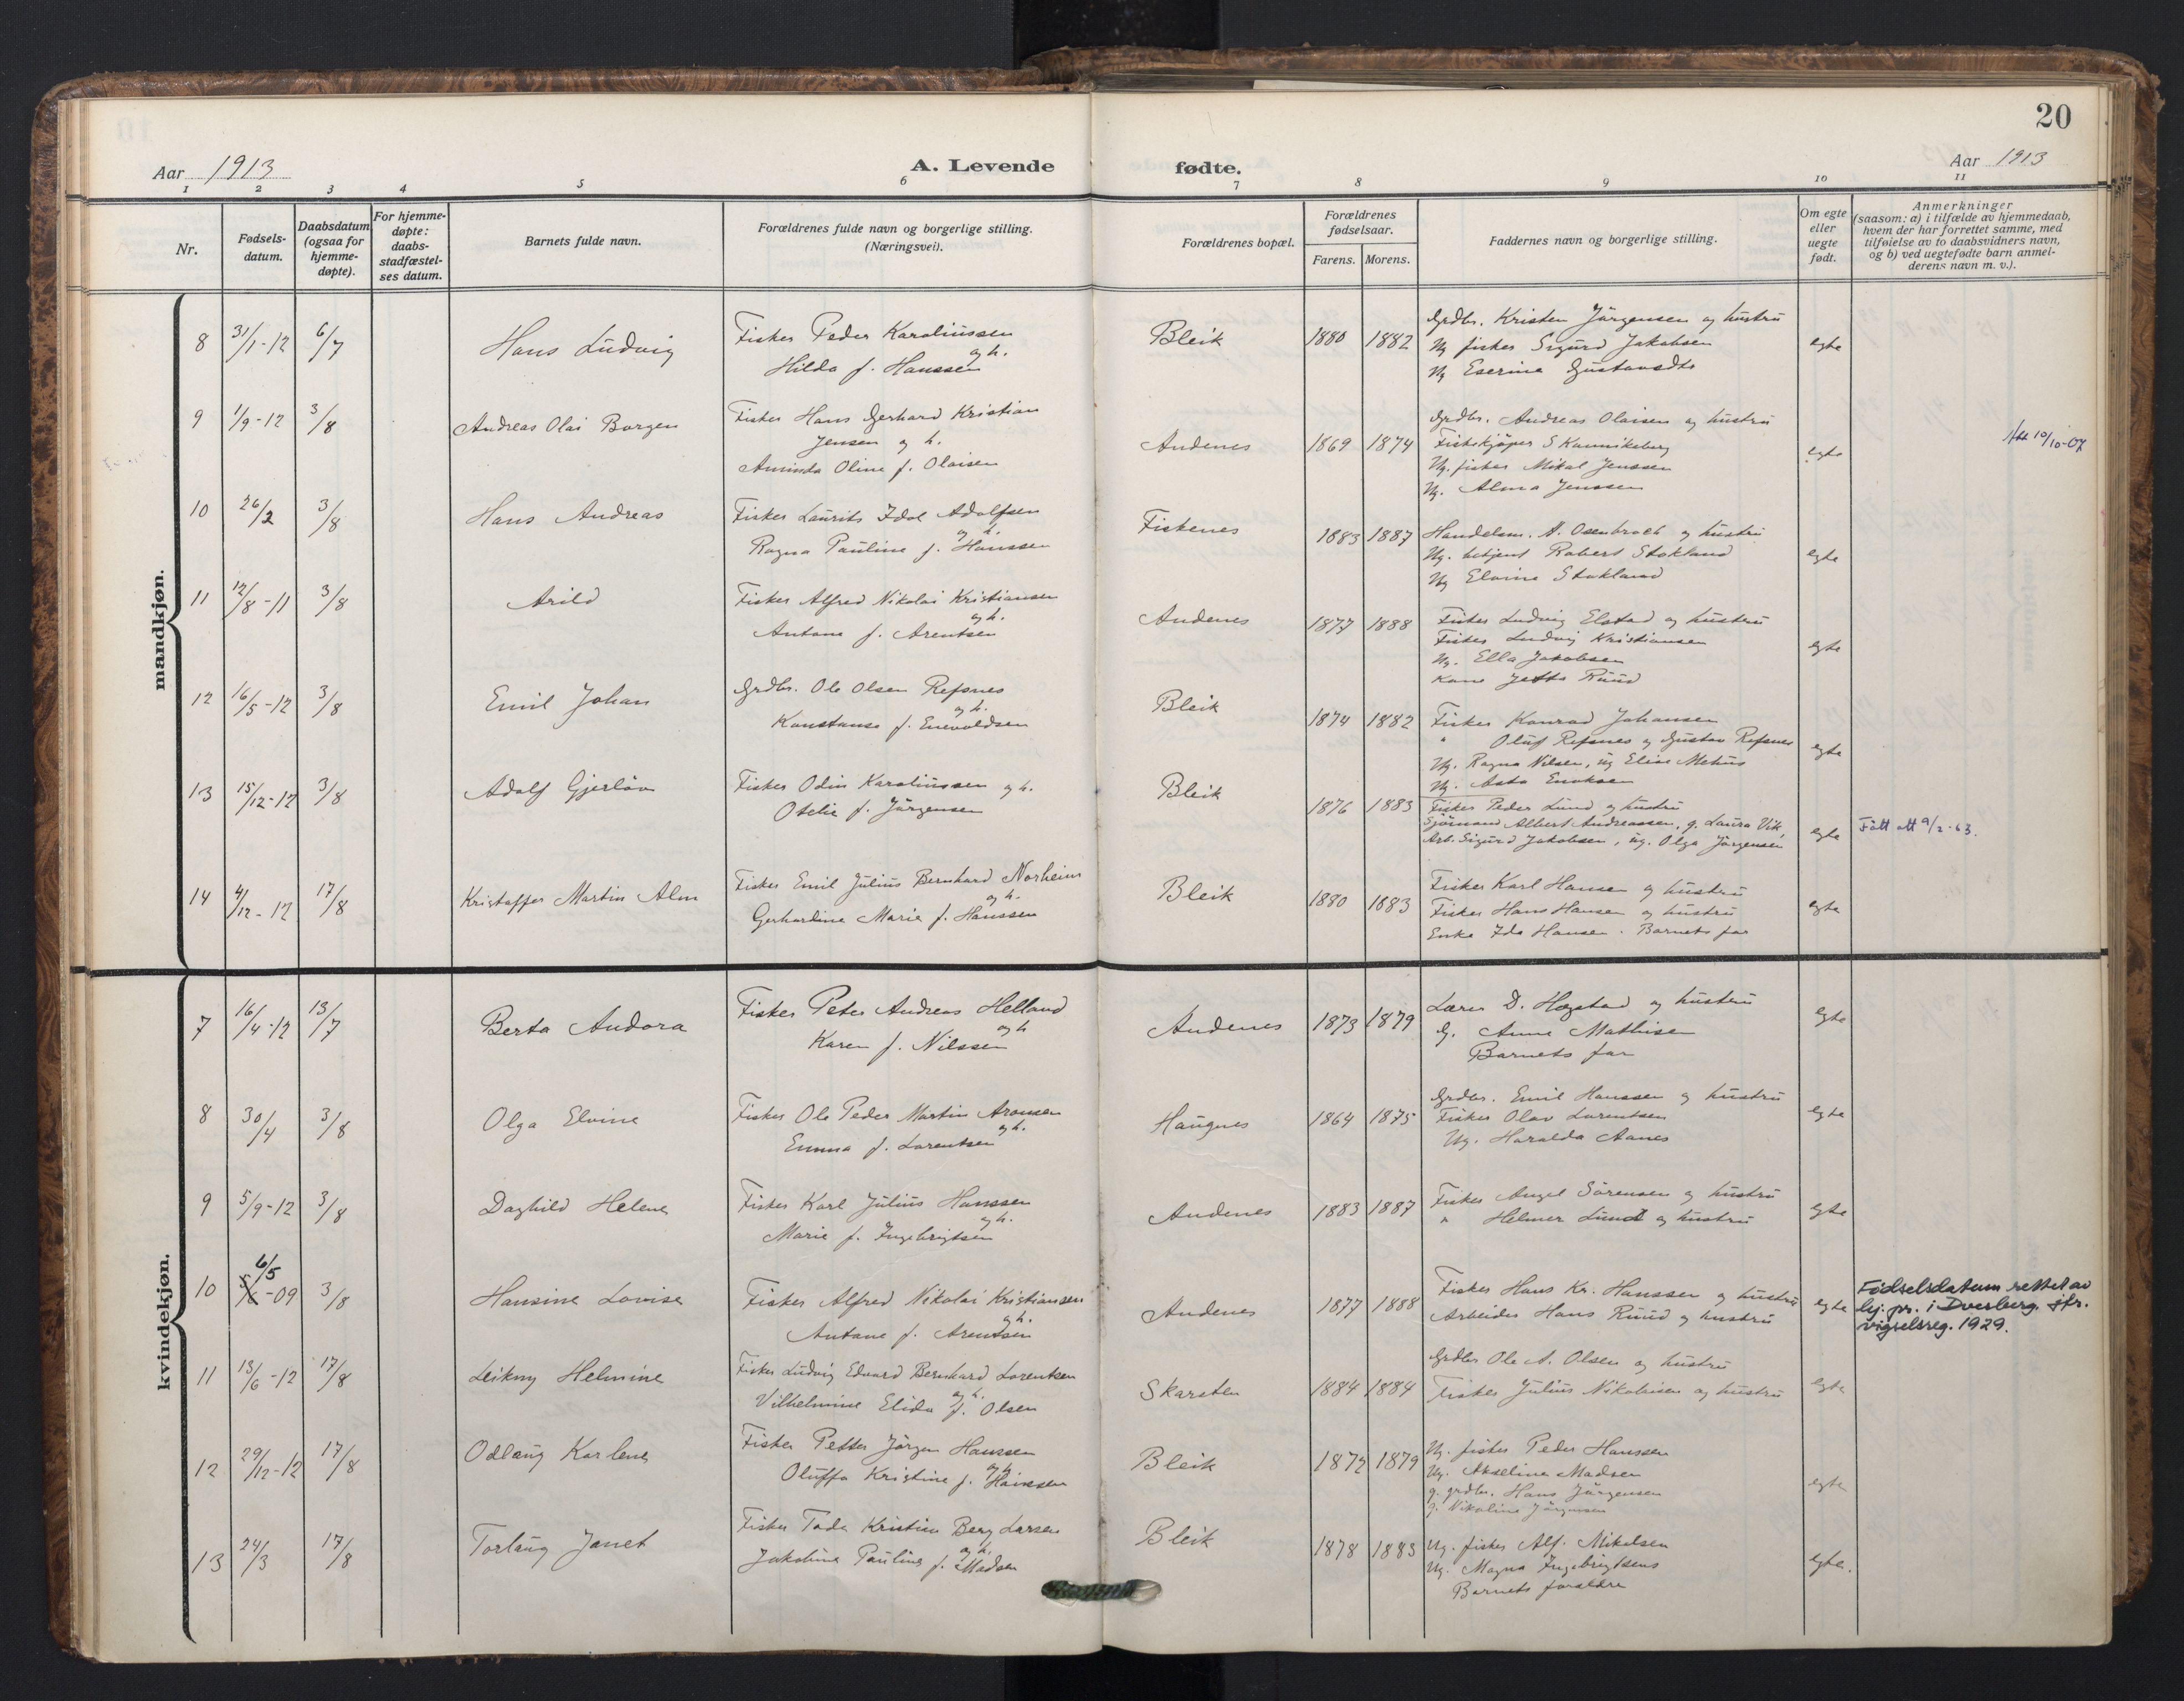 20
Aar 1913
A. Levende
fødte.
Aar 1913
1 2 3 4 5 6 7 8 9 10 11
Nr.
Fødsels-
datum.
Daabsdatum
(ogsaa for
hjemme-
døpte).
For hjemme-
døpte:
daabs-
stadfæstel-
ses datum.
Barnets fulde navn.
Forældrenes fulde navn og borgerlige stilling.
(Næringsvei).
Forældrenes bopæl.
Forældrenes
fødselsaar.
Farens. Morens.
Faddernes navn og borgerlige stilling.
Om egte
eller
uegte
født.
Anmerkninger
(saasom: a) i tilfælde av hjemmedaab,
hvem der har forrettet samme, med
tilføielse av to daabsvidners navn,
og b) ved uegtefødte barn anmel-
derens navn m. v.).
mandkjøn.
8 31/1-12 6/7 Hans Ludvig
Fisker Peder Karolinssen
og h.
Hilda f. Hanssen
Bleik 1880 1882
Grdbr. Kristen Jörgensen og hustru
Ug fisker Sigurd Jakobsen
Ug Eserine Gustavsdtr
egte
9 1/9-12 3/8 Andreas Olai Borgen
Fisker Hans Gerhard Kristian
Jensen og h.
Aminda Oline f. Olaisen
Andenes 1869 1874
Grdbr. Andreas Olaisen og hustru
Fiskekjøper S Kannikeberg
Ug. fisker Mikal Jenssen
Ug. Alma Jenssen
egte
Att 10/10-07
10 26/2 3/8 Hans Andreas
Fisker Laurits Idol Adolfsen
og h.
Ragna Pauline f. Hanssen
Fiskenes 1883 1887
Handelsm. A. Osenbroch og hustru
Ug. betjent Robert Stokland
Ug Elvine Stokland
egte
11 12/8-11 3/8 Arild
Fisker Alfred Nikolai Kristiansen
og h.
Antone f. Arentsen
Andenes 1877 1888
Fisker Ludvig Elstad og hustru
Fisker Ludvig Kristiansen
Ug. Ella Jakobsen
Kone Jette Ruud
egte
12 16/5-12 3/8 Emil Johan
Grdbr. Ole Olsen Refsnes
og h.
Konstanse f. Enevoldsen
Bleik 1874 1882
Fisker Konrad Johansen
" Oluf Refsnes og Gustav Refsnes
Ug. Ragna Nilsen, ug Elias Metus
Ug. Asta Enoksen
egte
13 15/12-12 3/8 Adolf Gjerløv
Fisker Odin Karolinssen og h.
Otelie f. Jörgensen
Bleik 1876 1883
Fisker Peder Lund og hustru
Sjømand Albert Andreassen, g. Laura Vik,
Arb. Sigurd Jakobsen, ug. Olga Jörgensen
egte
Fått att 9/2-63.
14 4/12-12 17/8 Kristoffer Martin Alm
Fisker Emil Julius Bernhard Norheim
og h.
Gerhardine Marie f. Hanssen
Bleik 1880 1883
Fisker Karl Hansen og hustru
Fisker Hans Hansen og hustru
Enke Ida Hansen. Barnets far
egte
kvindekjøn.
7 16/4-12 13/7 Berta Andora
Fisker Peter Andreas Helland
og h
Karen f. Nilssen
Andenes 1873 1879
Lærer D. Høgstad og hustru
G. Anne Mathisen
Barnets far
egte
8 30/4 3/8 Olga Elvine
Fisker Ole Peder Martin Aronsen
og h.
Emma f. Lorentsen
Haugnes 1864 1875
Grdbr. Emil Hanssen og hustru
Fisker Olav Lorentsen
Ug. Haralda Aanes
egte
9 5/9-12 3/8 Daghild Helene
Fisker Karl Julius Hanssen
og h.
Marie f. Ingebrigtsen
Andenes 1883 1887
Fisker Angel Sörensen og hustru
" Helmer Lund og hustru
egte
10 6/5 -09 3/8 Hansine Lovise
Fisker Alfred Nikolai Kristiansen
og h.
Antone f. Arentsen
Andenes 1877 1888
Fisker Hans Kr. Hanssen og hustru
Arbeider Hans Ruud og hustru
egte
Fødselsdatum rettet av
bj. pr. i Dverberg. jfr.
vigselsreg. 1929.
11 13/6-12 17/8 Leikny Helmine
Fisker Ludvig Edvard Bernhard Lorentsen
og h.
Vilhelmine Elida f. Olsen
Skarsten 1884 1884
Grdbr Ole A. Olsen og hustru
Fisker Julius Nikolaisen og hustru
egte
12 29/12-12 17/8 Odlaug Karlene
Fisker Petter Jörgen Hanssen
og h
Oluffa Kristine f. Hanssen
Bleik 1872 1879
Ug. fisker Peder Hanssen
Ug. Akseline Madsen
g. grdbr. Hans Jörgensen
g. Nikoline Jörgensen
egte
13 24/3 17/8 Torlaug Janet
Fisker Tode Kristian Berg Larsen
og h.
Jakobine Pauline f. Madsen
Bleik 1878 1883
Ug. fisker Alf. Mikelsen
Ug. Magna Ingebrigtsens
Barnets forældre
egte.